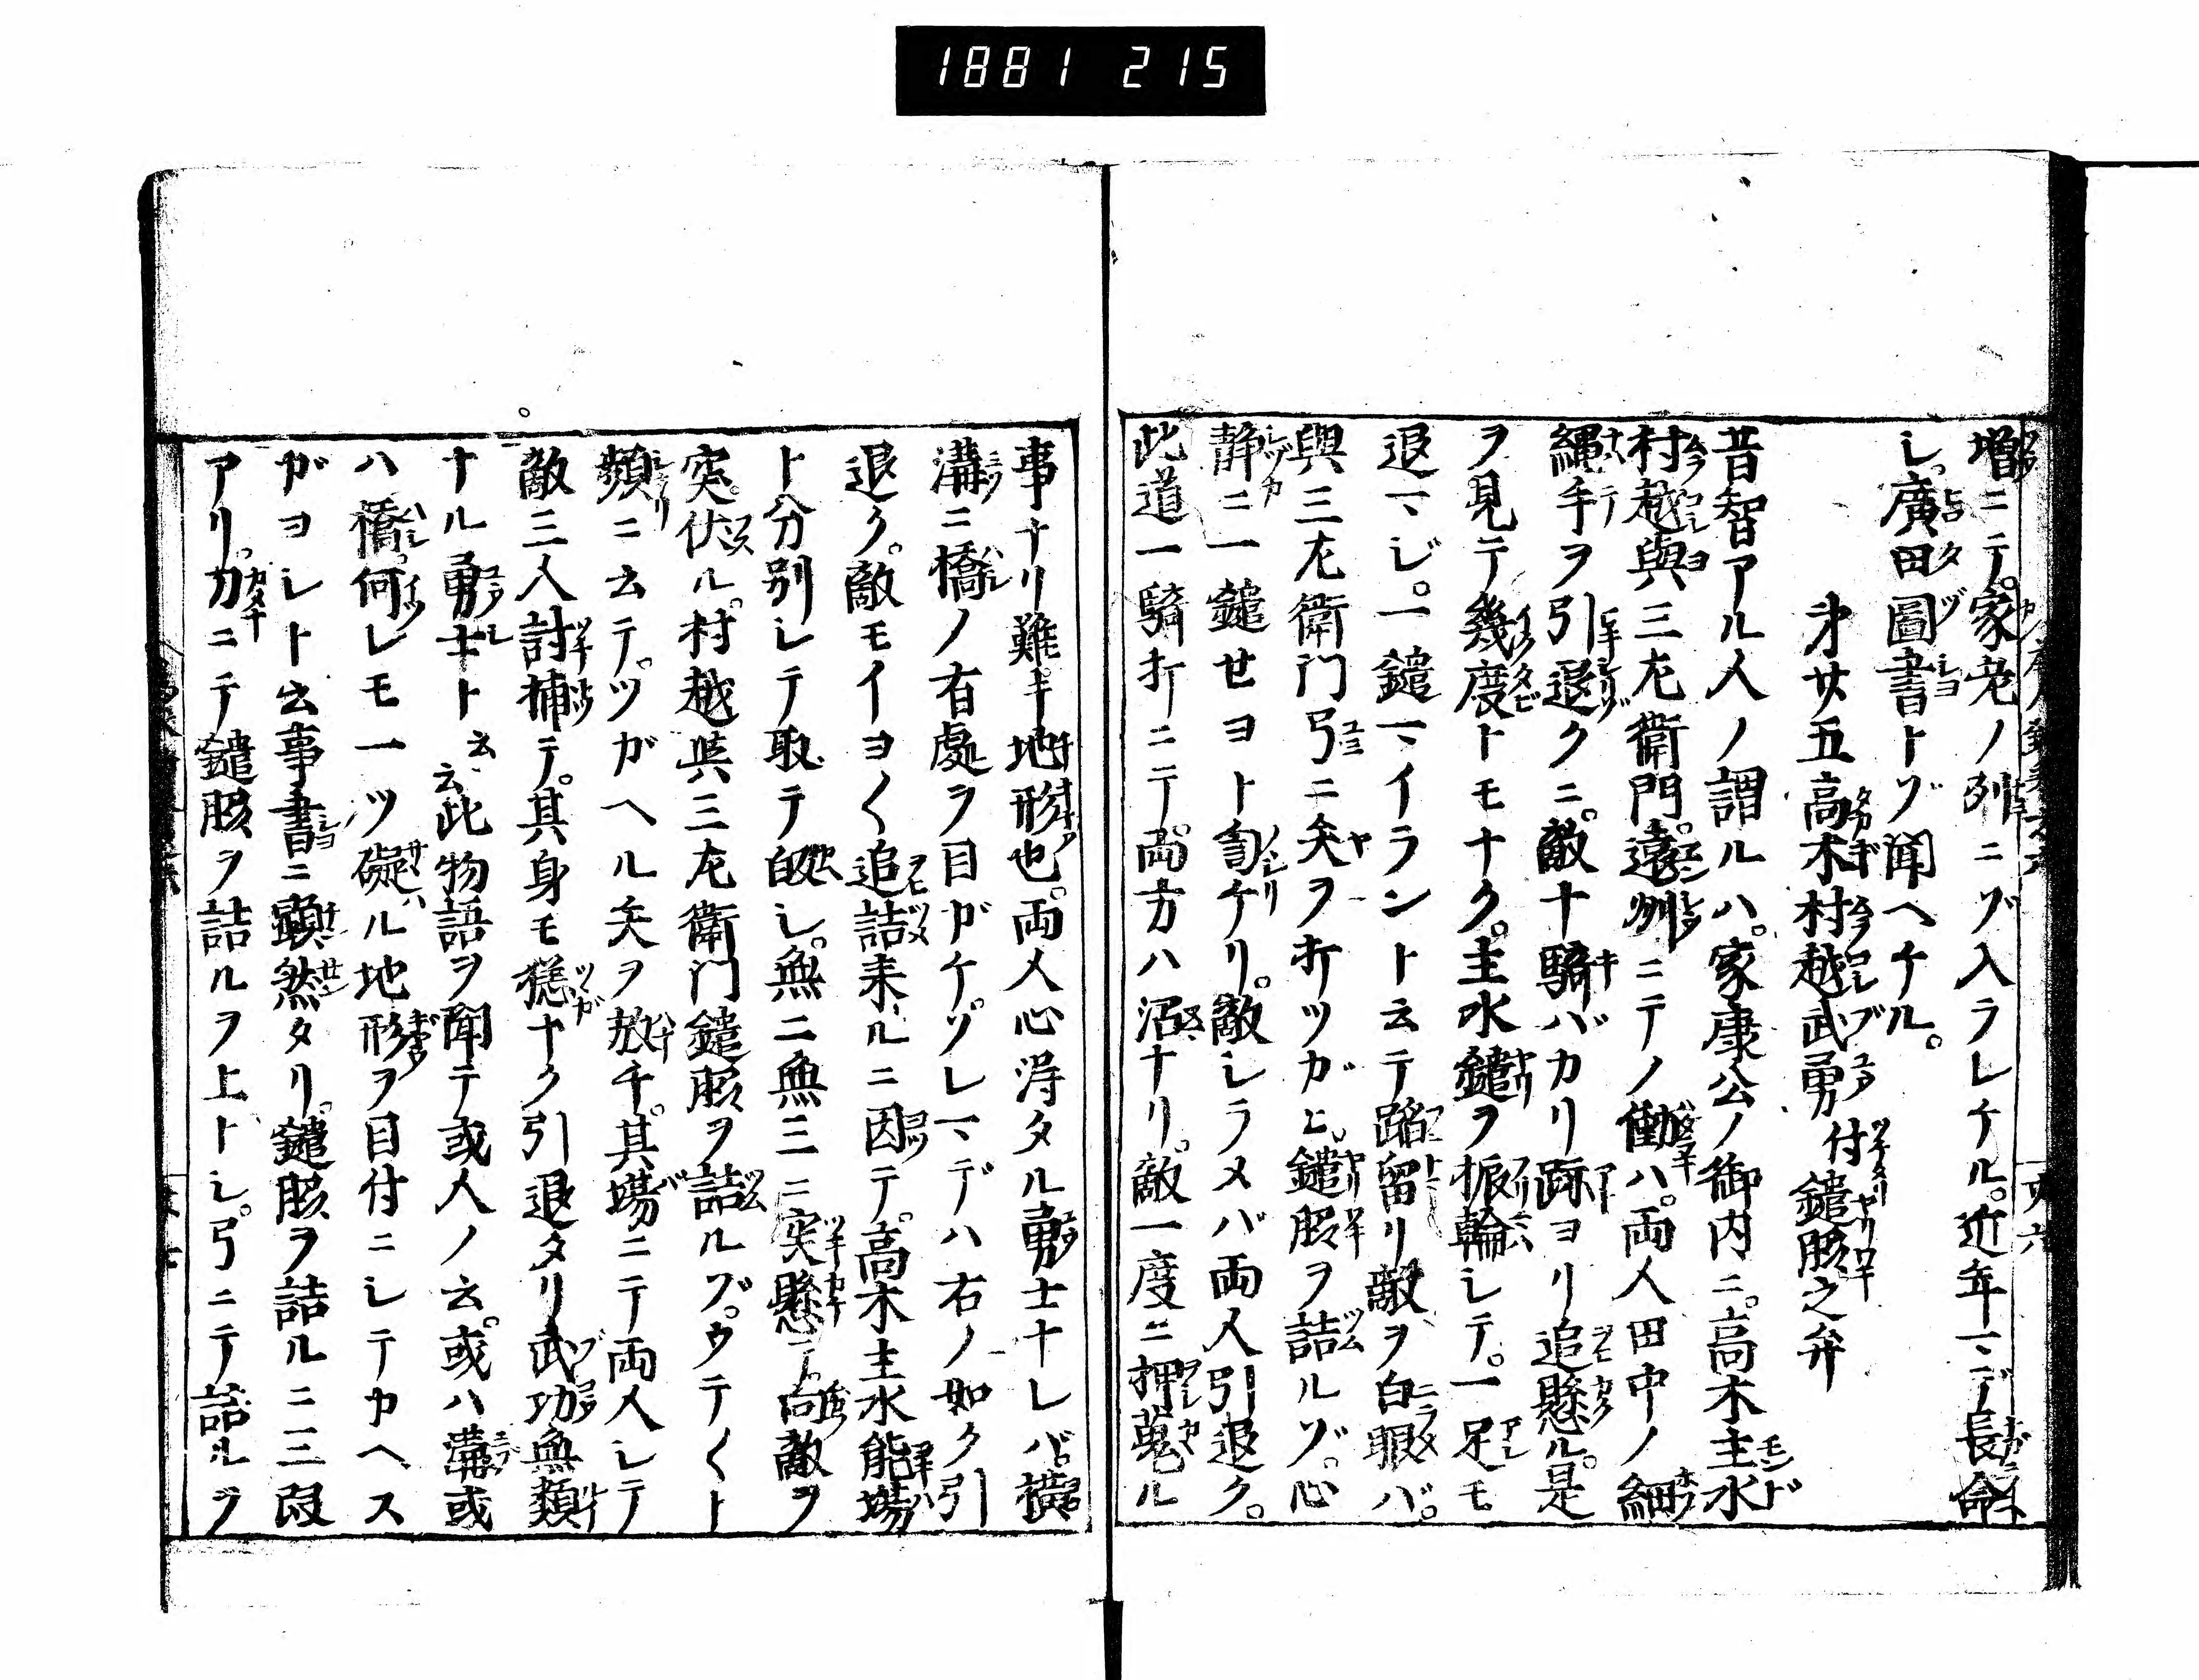 1881 215
増ニテ。家老ノ列ニゾ入ラレケル。近年マデ長命
シ。廣田圖書トゾ聞ヘケル。
才廿五高木村越武勇付鑓脇之弁
昔智アル人ノ謂ルハ。家康公ノ御内ニ。高木主水
村越與三左衛門。遠州ニテノ働ハ。両人田中ノ細
縄手ヲ引退クニ。敵十騎バカリ跡ヨリ追懸ル。是
ヲ見テ幾度トモナク。主水鑓ヲ振輪シテ。一足モ
退マジ。一鑓マイラントテ云テ蹈留リ敵ヲ白眼バ。
與三左衛门弓ニ矢ヲ折ツガヒ。鑓脇ヲ詰ルゾ。心
静ニ一鑓セヨト訇ケリ。敵シラメバ両人引退ク。
此道一騎折ニテ。両方ハ沼ナリ。敵一度ニ押蒐ル
事ナリ難キ地形也。両人心得タル勇士ナレバ。横
溝ニ橋ノ有處ヲ目ガケ。ゾレマデハ右ノ如ク引
退ク。敵モイヨ〱追詰来ルニ因テ。高木主水能場
ト分別シテ取テ皈シ。無ニ無三ニ突懸テ。向敵ヲ
突伏ル。村越與三左衛门鑓脇ヲ詰ルゾ。ウテ〱ト
頻ニ云テ。ツガヘル矢ヲ放チ。其場ニテ両人シテ
敵三人討捕テ。其身モ穏ナク引退タリ武功無類
ナル勇士ト云云此物語ヲ聞テ或人ノ云。或ハ溝或
ハ橋。何レモ一ツ礙ル地形ヲ目付ニシテカヘス
ガヨシト云事書ニ顕然タリ。鑓脇ヲ詰ルニ三段
アリ。刀ニテ鑓脇ヲ詰ルヲ上トシ。弓ニテ詰ルヲ